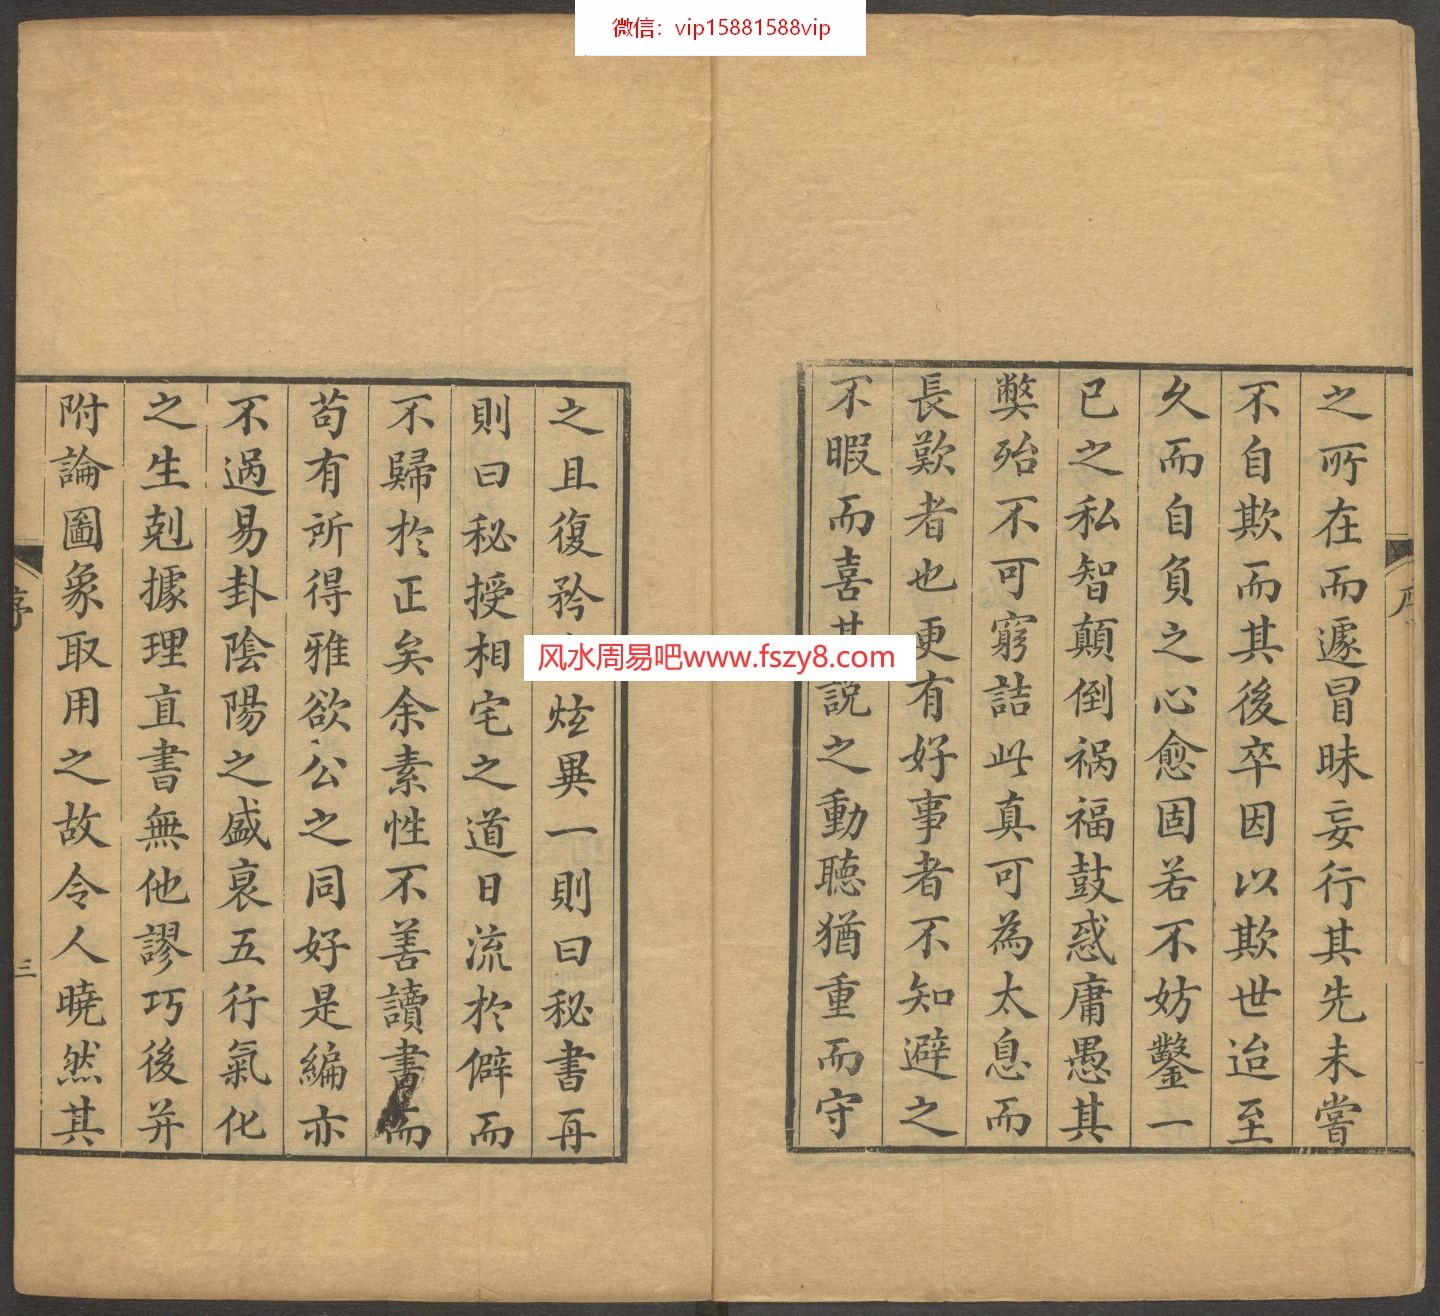 微信：vip15881588vip
之所在而遽冒昧妄行其先未嘗
不自欺而其後卒因以欺世迨至
久而自負之心愈固若不妨鑿一
已之私智顛倒祸福鼓惑庸愚其
獘殆不可窮詰此真可為太息而
長歎者也更有好事者不知避之
不暇而喜其說之動聽猶重而守
之且復矜炫異一則曰秘書再
則曰秘授相宅之道日流於僻而
不歸於正矣余素性不善讀書而
苟有所得雅欲公之同好是編亦
不過易卦陰陽之盛衰五行氣化
之生剋據理直書無他謬巧後并
附論圖象取用之故令人曉然其
序
三
风水周易吧www.fszy8.com